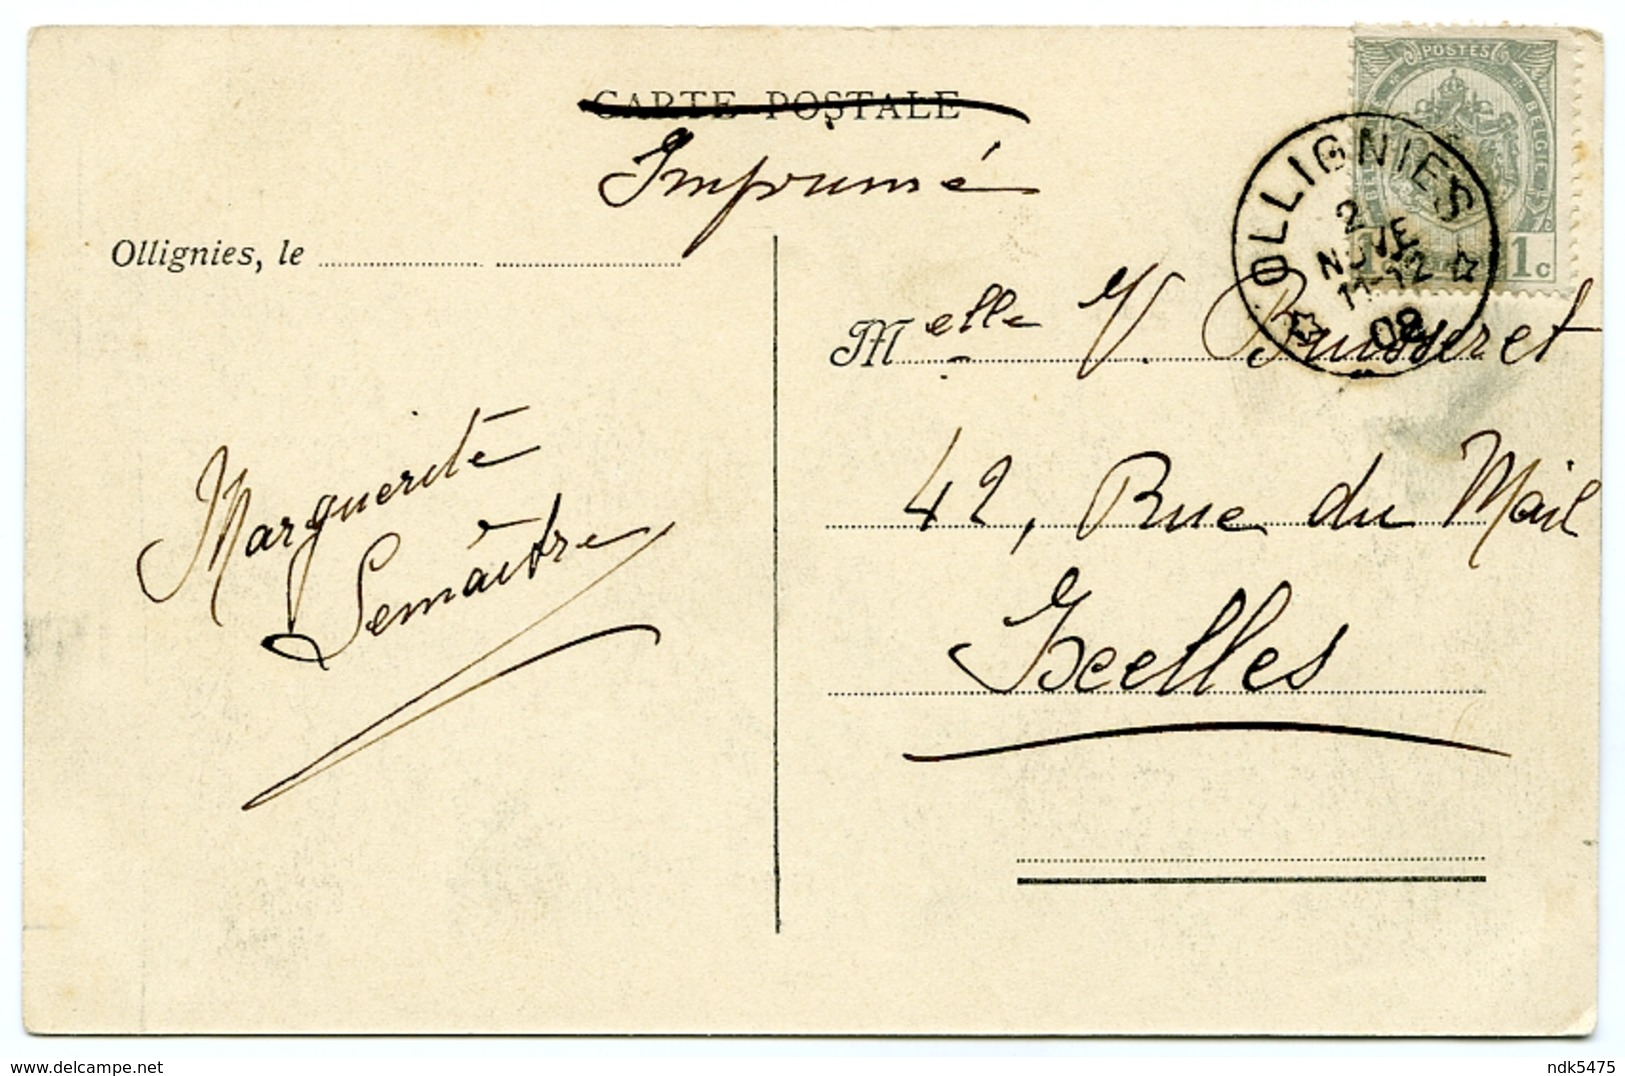 CARTE POSTALE
Imprimé
POSTES
BELGIË
1c
OLLIGNIES
2
NOVE
11-12
08
Ollignies, le
Melle V. Buisseret
42, Rue du Mail
Ixelles
Marguerite
Lemaître
delcampe.net
ndk5475